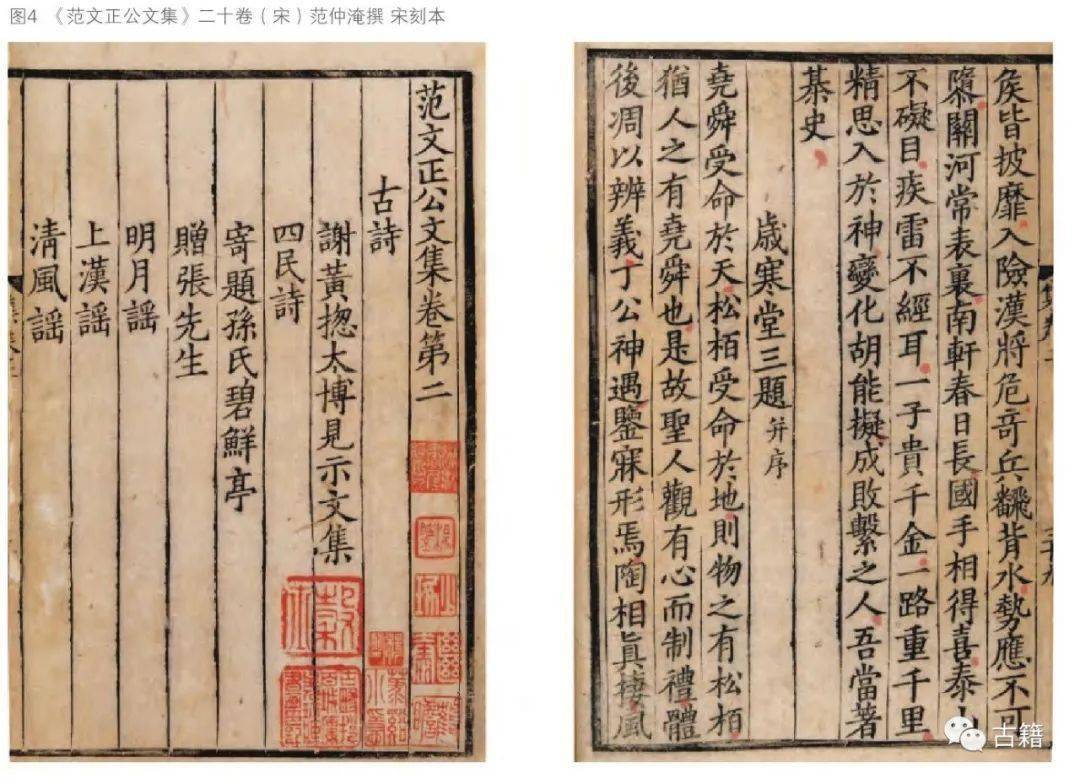 图4 《范文正公文集》二十卷（宋）范仲淹撰 宋刻本
范文正公文集卷第二
古詩
謝黃揔太博見示文集
四民詩
寄題孫氏碧鮮亭
贈張先生
明月謠
上漢謠
清風謠
矦皆披靡入險漢將危奇兵翻背水勢應不可
隳關河常表裏南軒春日長國手相得喜泰山
不礙目疾雷不經耳一子貴千金一路重千里
精思入於神變化胡能擬成敗繫之人吾當著
棊史
歲寒堂三題 并序
堯舜受命於天松栢受命於地則物之有松栢
猶人之有堯舜也是故聖人觀有心而制禮體
後凋以辨義丁公神遇鑒寐形焉陶相眞棲風
古籍